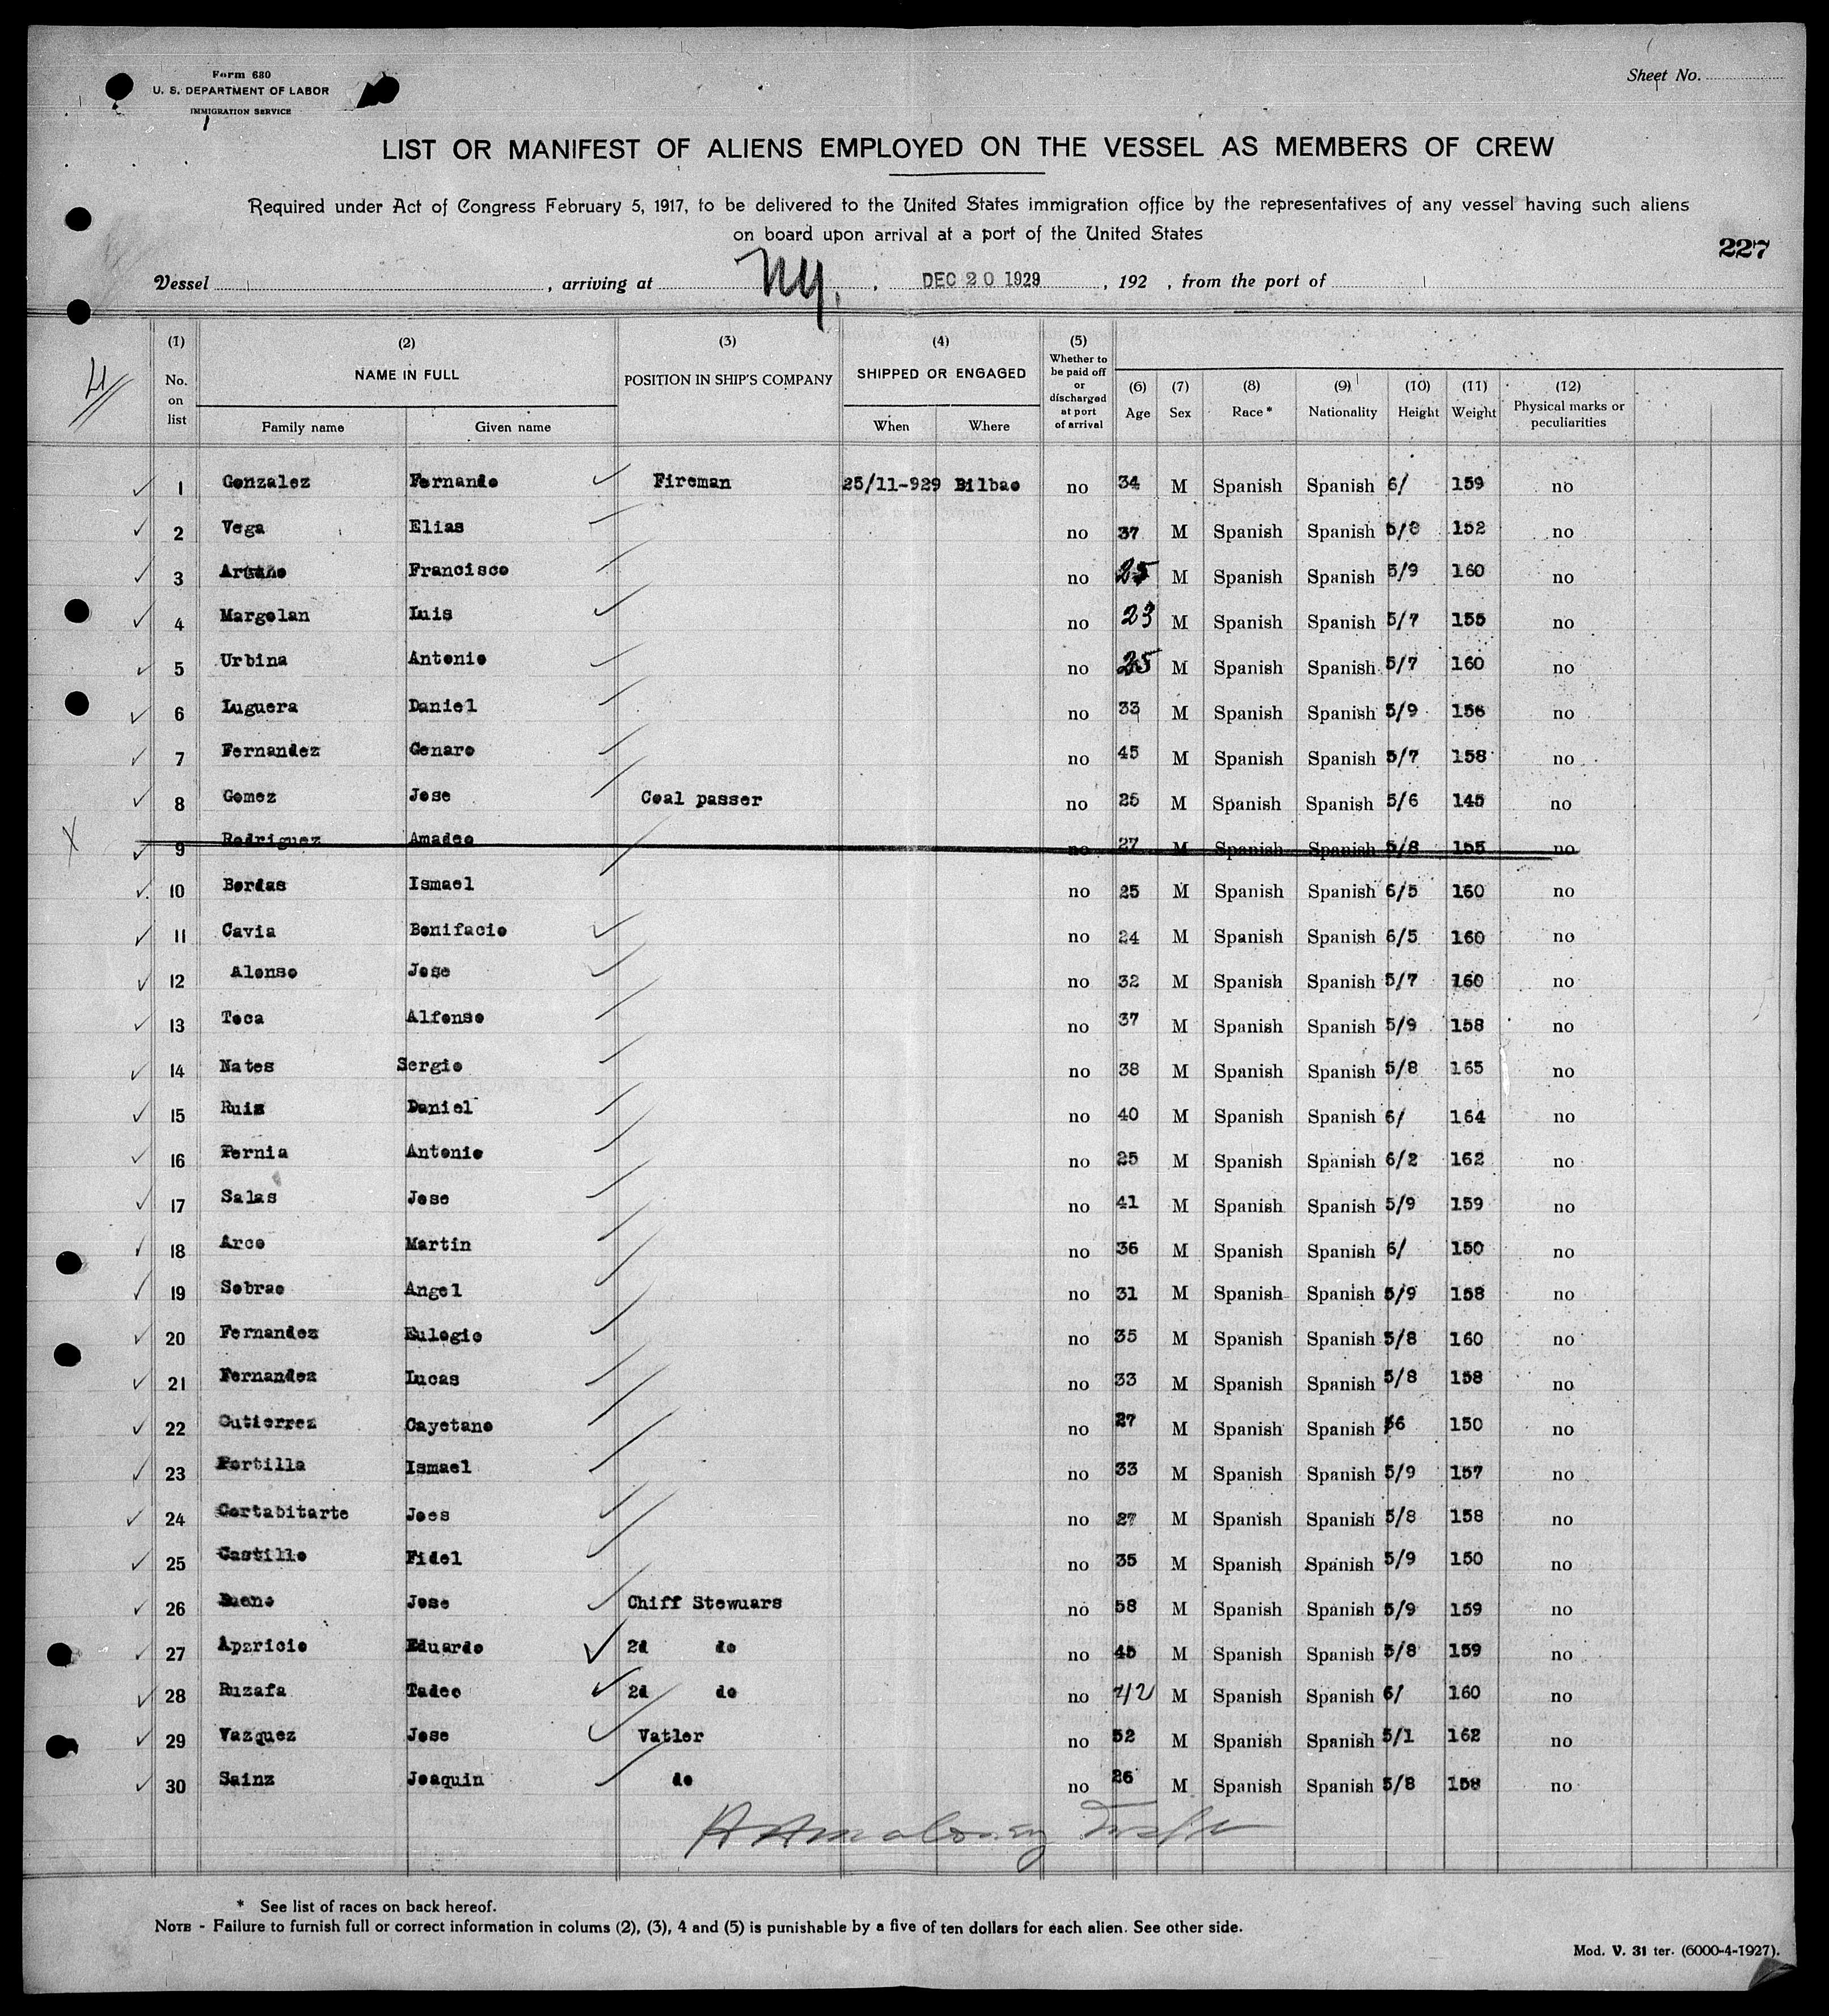 Form 680
U. S. DEPARTMENT OF LABOR
IMMIGRATION SERVICE
Sheet No.
LIST OR MANIFEST OF ALIENS EMPLOYED ON THE VESSEL AS MEMBERS OF CREW
Required under Act of Congress February 5, 1917, to be delivered to the United States immigration office by the representatives of any vessel having such aliens
on board upon arrival at a port of the United States
227
Vessel , arriving at Ny. , DEC 20 1929 , 192 , from the port of
(1) No. on list (2) NAME IN FULL Family name Given name (3) POSITION IN SHIP'S COMPANY (4) SHIPPED OR ENGAGED When Where (5) Whether to be paid off or discharged at port of arrival (6) Age (7) Sex (8) Race * (9) Nationality (10) Height (11) Weight (12) Physical marks or peculiarities
1 Gonzalez Fernando Fireman 25/11-929 Bilbao no 34 M Spanish Spanish 6/ 159 no
2 Vega Elias no 37 M Spanish Spanish 5/8 152 no
3 Francisco no 25 M Spanish Spanish 5/9 160 no
4 Margolan Luis no 23 M Spanish Spanish 5/7 155 no
5 Urbina Antonio no 25 M Spanish Spanish 5/7 160 no
6 Luguera Daniel no 33 M Spanish Spanish 5/9 156 no
7 Fernandez Genaro no 45 M Spanish Spanish 5/7 158 no
8 Gomez Jose Coal passer no 25 M Spanish Spanish 5/6 145 no
9 Rodriguez Amadeo no 27 M Spanish Spanish 5/8 155 no
10 Bordas Ismael no 25 M Spanish Spanish 6/5 160 no
11 Cavia Bonifacio no 24 M Spanish Spanish 6/5 160 no
12 Alonso Jose no 32 M Spanish Spanish 5/7 160 no
13 Toca Alfonso no 37 M Spanish Spanish 5/9 158 no
14 Nates Sergio no 38 M Spanish Spanish 5/8 165 no
15 Ruiz Daniel no 40 M Spanish Spanish 6/ 164 no
16 Pernia Antonio no 25 M Spanish Spanish 6/2 162 no
17 Salas Jose no 41 M Spanish Spanish 5/9 159 no
18 Arce Martin no 36 M Spanish Spanish 6/ 150 no
19 Sobrao Angel no 31 M Spanish Spanish 5/9 158 no
20 Fernandez Eulogio no 35 M Spanish Spanish 5/8 160 no
21 Fernandez Lucas no 33 M Spanish Spanish 5/8 158 no
22 Gutierrez Cayetano no 27 M Spanish Spanish 56 150 no
23 Portilla Ismael no 33 M Spanish Spanish 5/9 157 no
24 Cortabitarte Joes no 27 M Spanish Spanish 5/8 158 no
25 Castillo Fidel no 35 M Spanish Spanish 5/9 150 no
26 Bueno Jose Chiff Stewuars no 58 M Spanish Spanish 5/9 159 no
27 Aparicio Eduardo 2d do no 45 M Spanish Spanish 5/8 159 no
28 Ruzafa Tadeo 2d do no 42 M Spanish Spanish 6/ 160 no
29 Vazquez Jose Vatler no 52 M Spanish Spanish 5/1 162 no
30 Sainz Joaquin do no 26 M Spanish Spanish 5/8 158 no
* See list of races on back hereof.
NOTE - Failure to furnish full or correct information in colums (2), (3), 4 and (5) is punishable by a five of ten dollars for each alien. See other side.
Mod. V. 31 ter. (6000-4-1927).